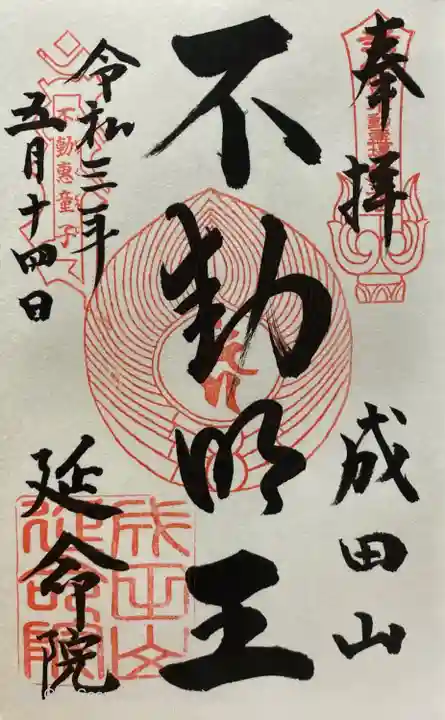 奉拝
成田山
不動明王
令和三年
五月十四日
延命院
不動恵童子
成田山
延命院